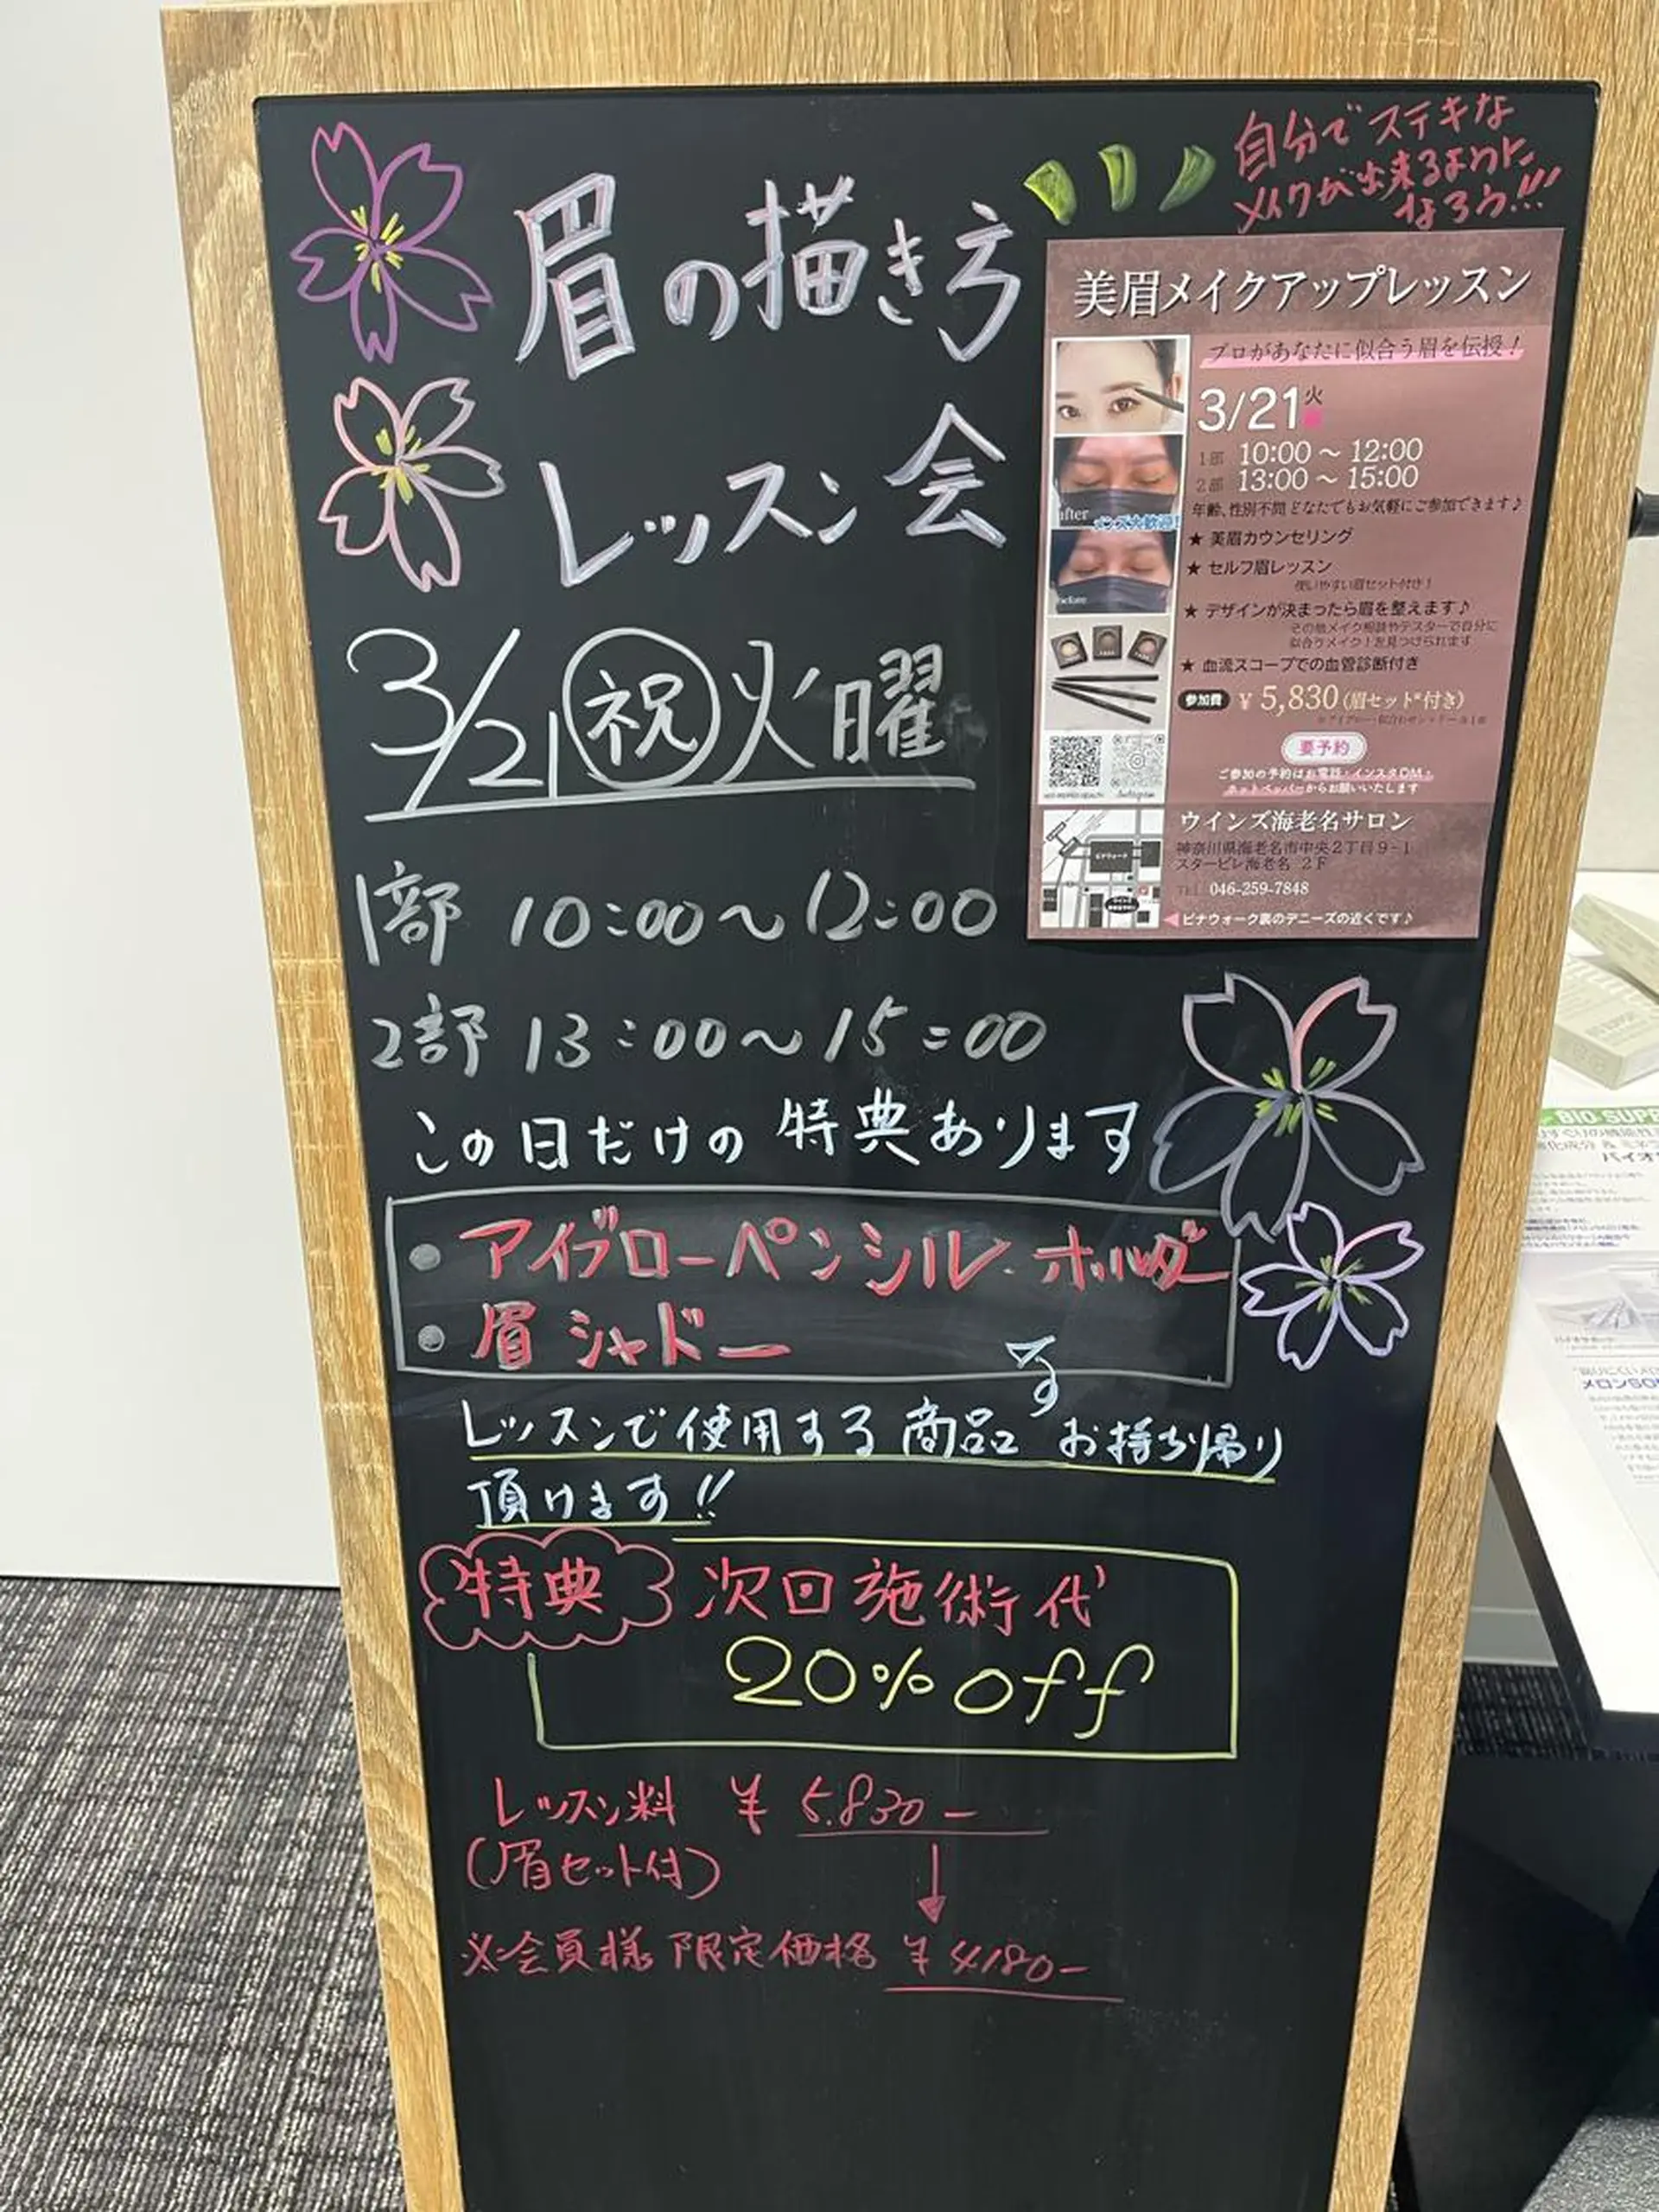 眉の描き方
レッスン会
3/21 祝 火曜
1部 10:00～12:00
2部 13:00～15:00
この日だけの特典あります
・アイブローペンシル・ホルダー
・眉シャドー
レッスンで使用する商品 お持ち帰り
頂けます!!
特典 次回施術代
20%off
レッスン料 ¥5.830-
(眉セット付)
※会員様限定価格 ¥4180-
自分でステキな
メイクが出来るように
なろう!!!
美眉メイクアップレッスン
プロがあなたに似合う眉を伝授！
3/21 火
1部 10:00～12:00
2部 13:00～15:00
年齢、性別不問 どなたでもお気軽にご参加できます♪
after
メンズ大歓迎!
before
★ 美眉カウンセリング
★ セルフ眉レッスン
使いやすい眉セット付き！
★ デザインが決まったら眉を整えます♪
その他メイク相談やテスターで自分に
似合うメイク！を見つけられます
★ 血流スコープでの血管診断付き
参加費 ¥ 5,830 (眉セット*付き)
要予約
ご参加の予約はお電話・インスタDM・
ホットペッパーからお願いいたします
ウインズ海老名サロン
神奈川県海老名市中央２丁目９−１
スタービレ海老名 ２Ｆ
TEL 046-259-7848
◀ ビナウォーク裏のデニーズの近くです♪
BIO SUPP